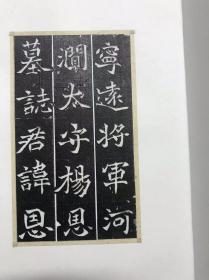 寧遠將軍河
澗太守楊恩
墓誌君諱恩